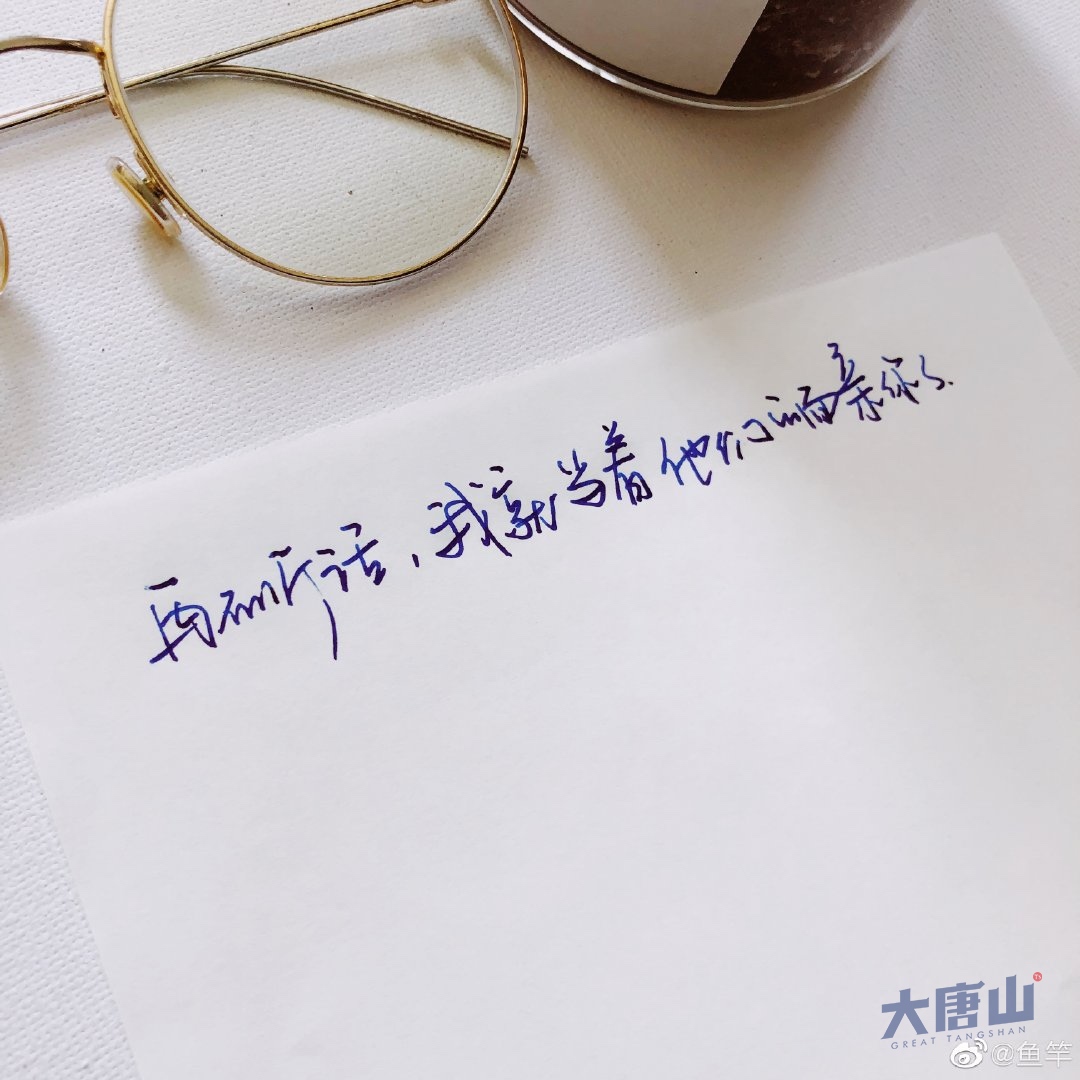 再不听话，我就当着他们的面亲你了.
大唐山
TS
GREAT TANGSHAN
@鱼竿